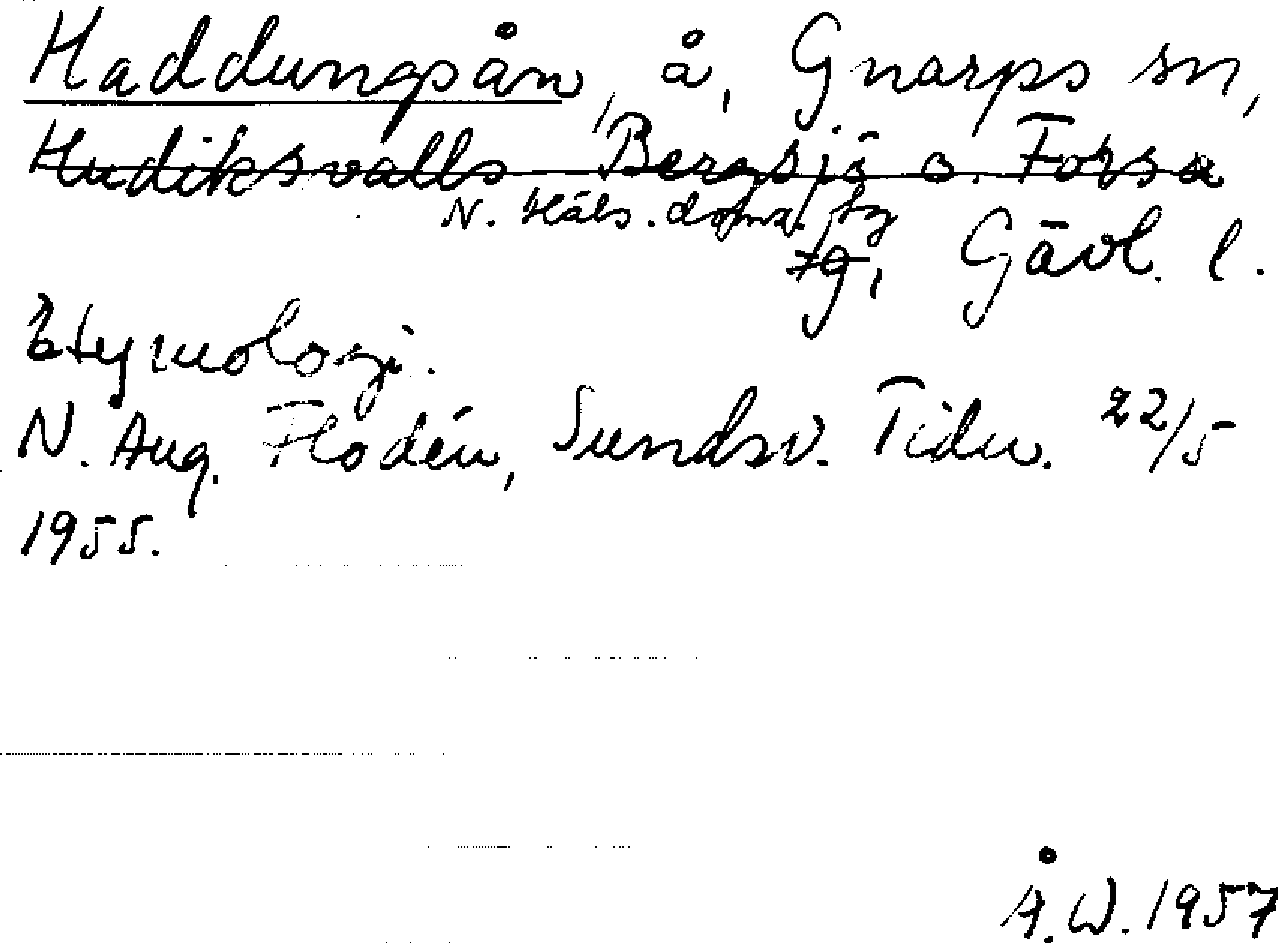 Haddungsån, å, Gnarps sn,
Hudiksvalls Bergsjö o. Forsa
N. Häls. doms. fg
tg, Gävl. l.
Etymologi.
N. Aug. Flodén, Sundsv. Tidn. 22/5
1955.
Å.W. 1957